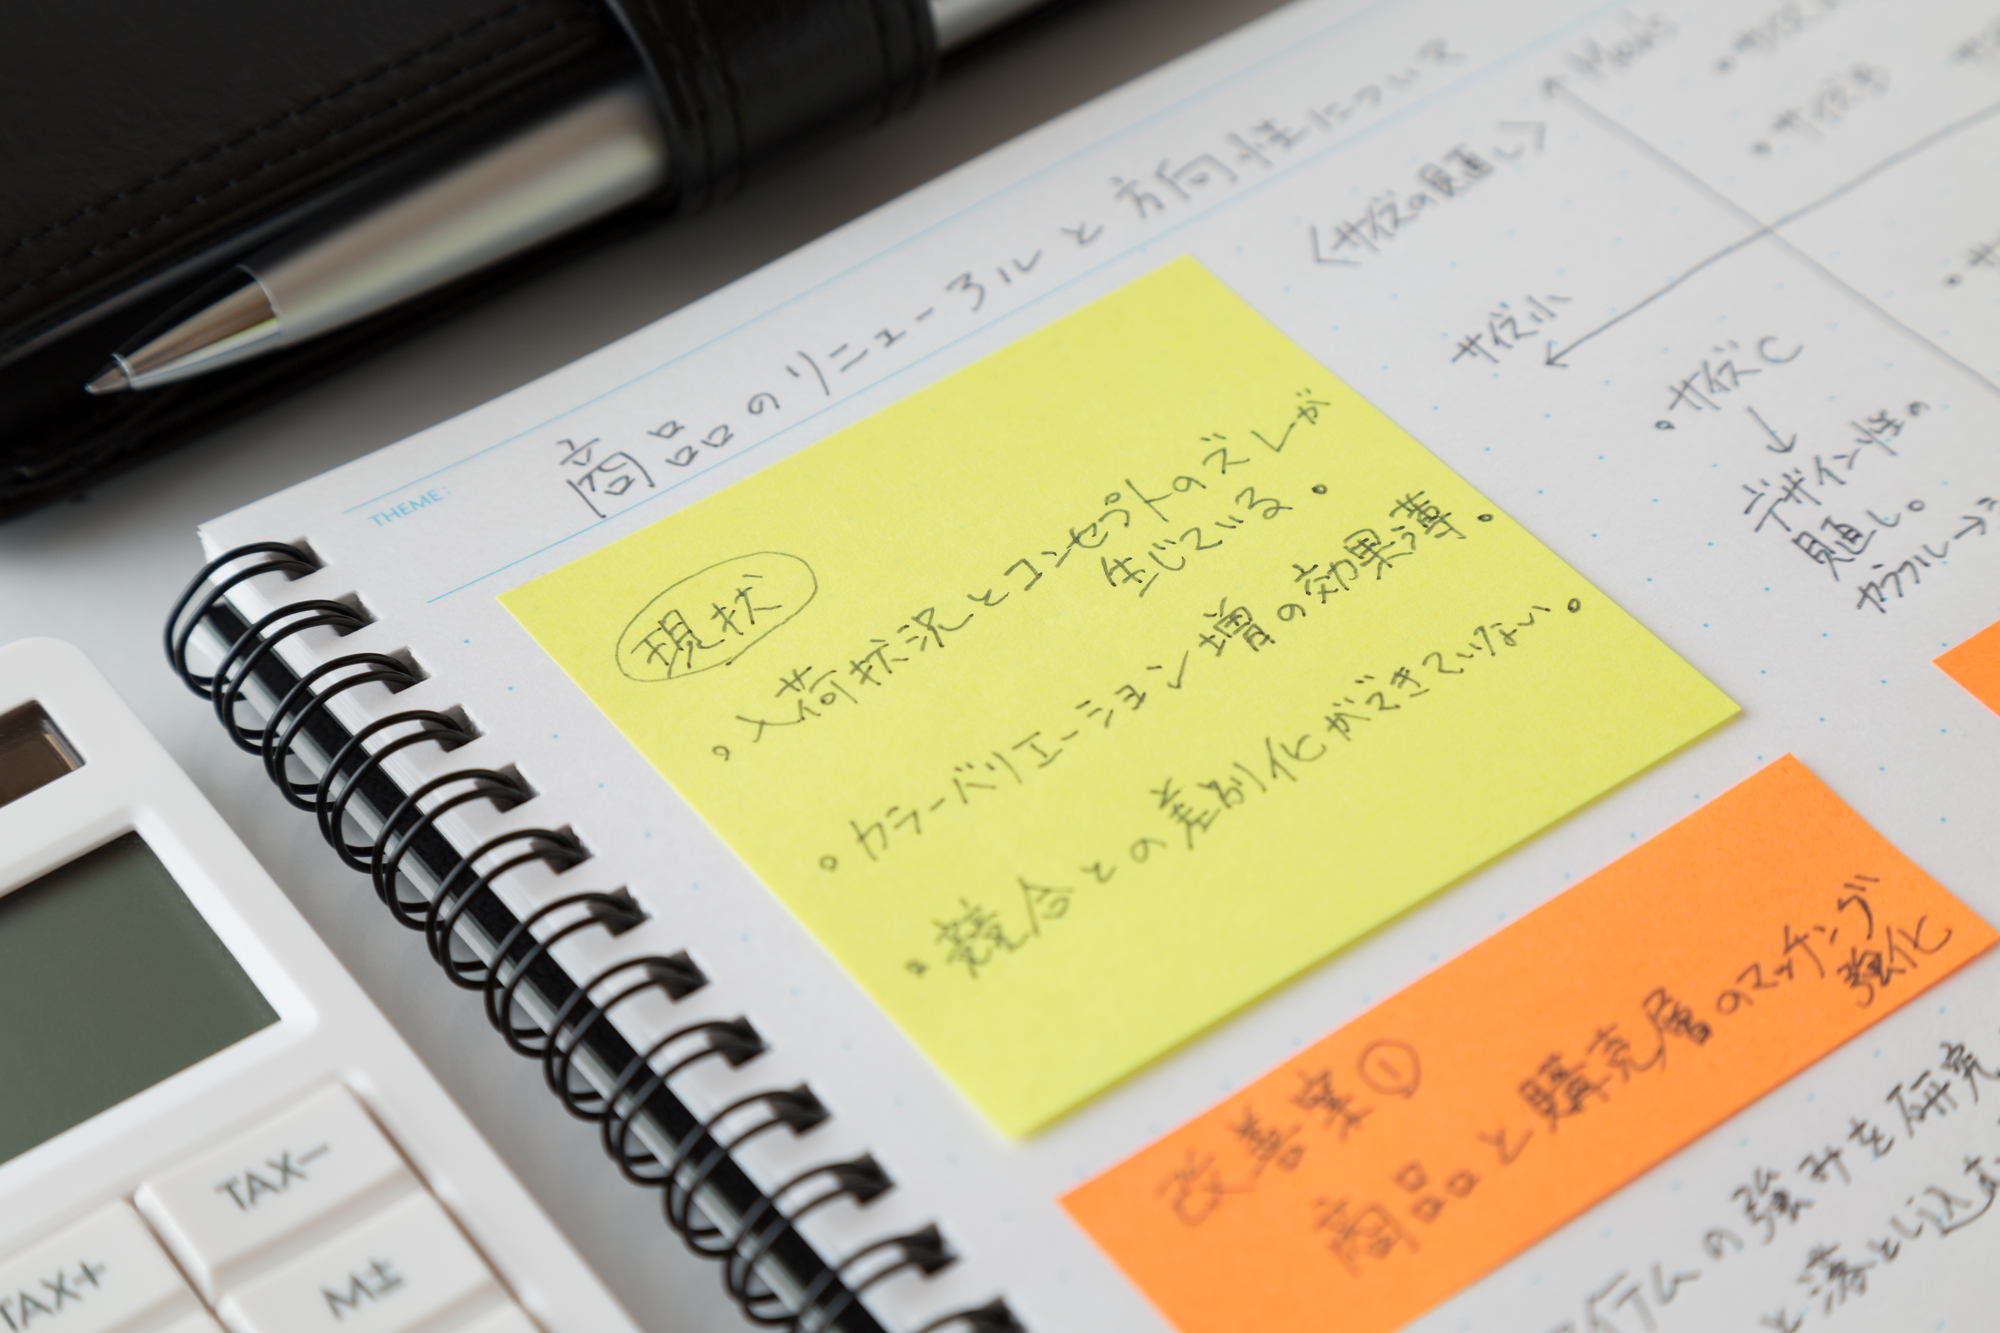 THEME:
商品のリニューアルと方向性について
現状
・入荷状況とコンセプトのズレが
生じている。
・カラーバリエーション増の効果薄。
・競合との差別化ができていない。
〈サイズの見直し〉
サイズ小
・サイズC
↓
デザイン性の
見直し。
カラフル
改善案①
商品と購売層のマッチング
強化
イテムの強みを研究
と落とし込
TAX−
TAX+
M±